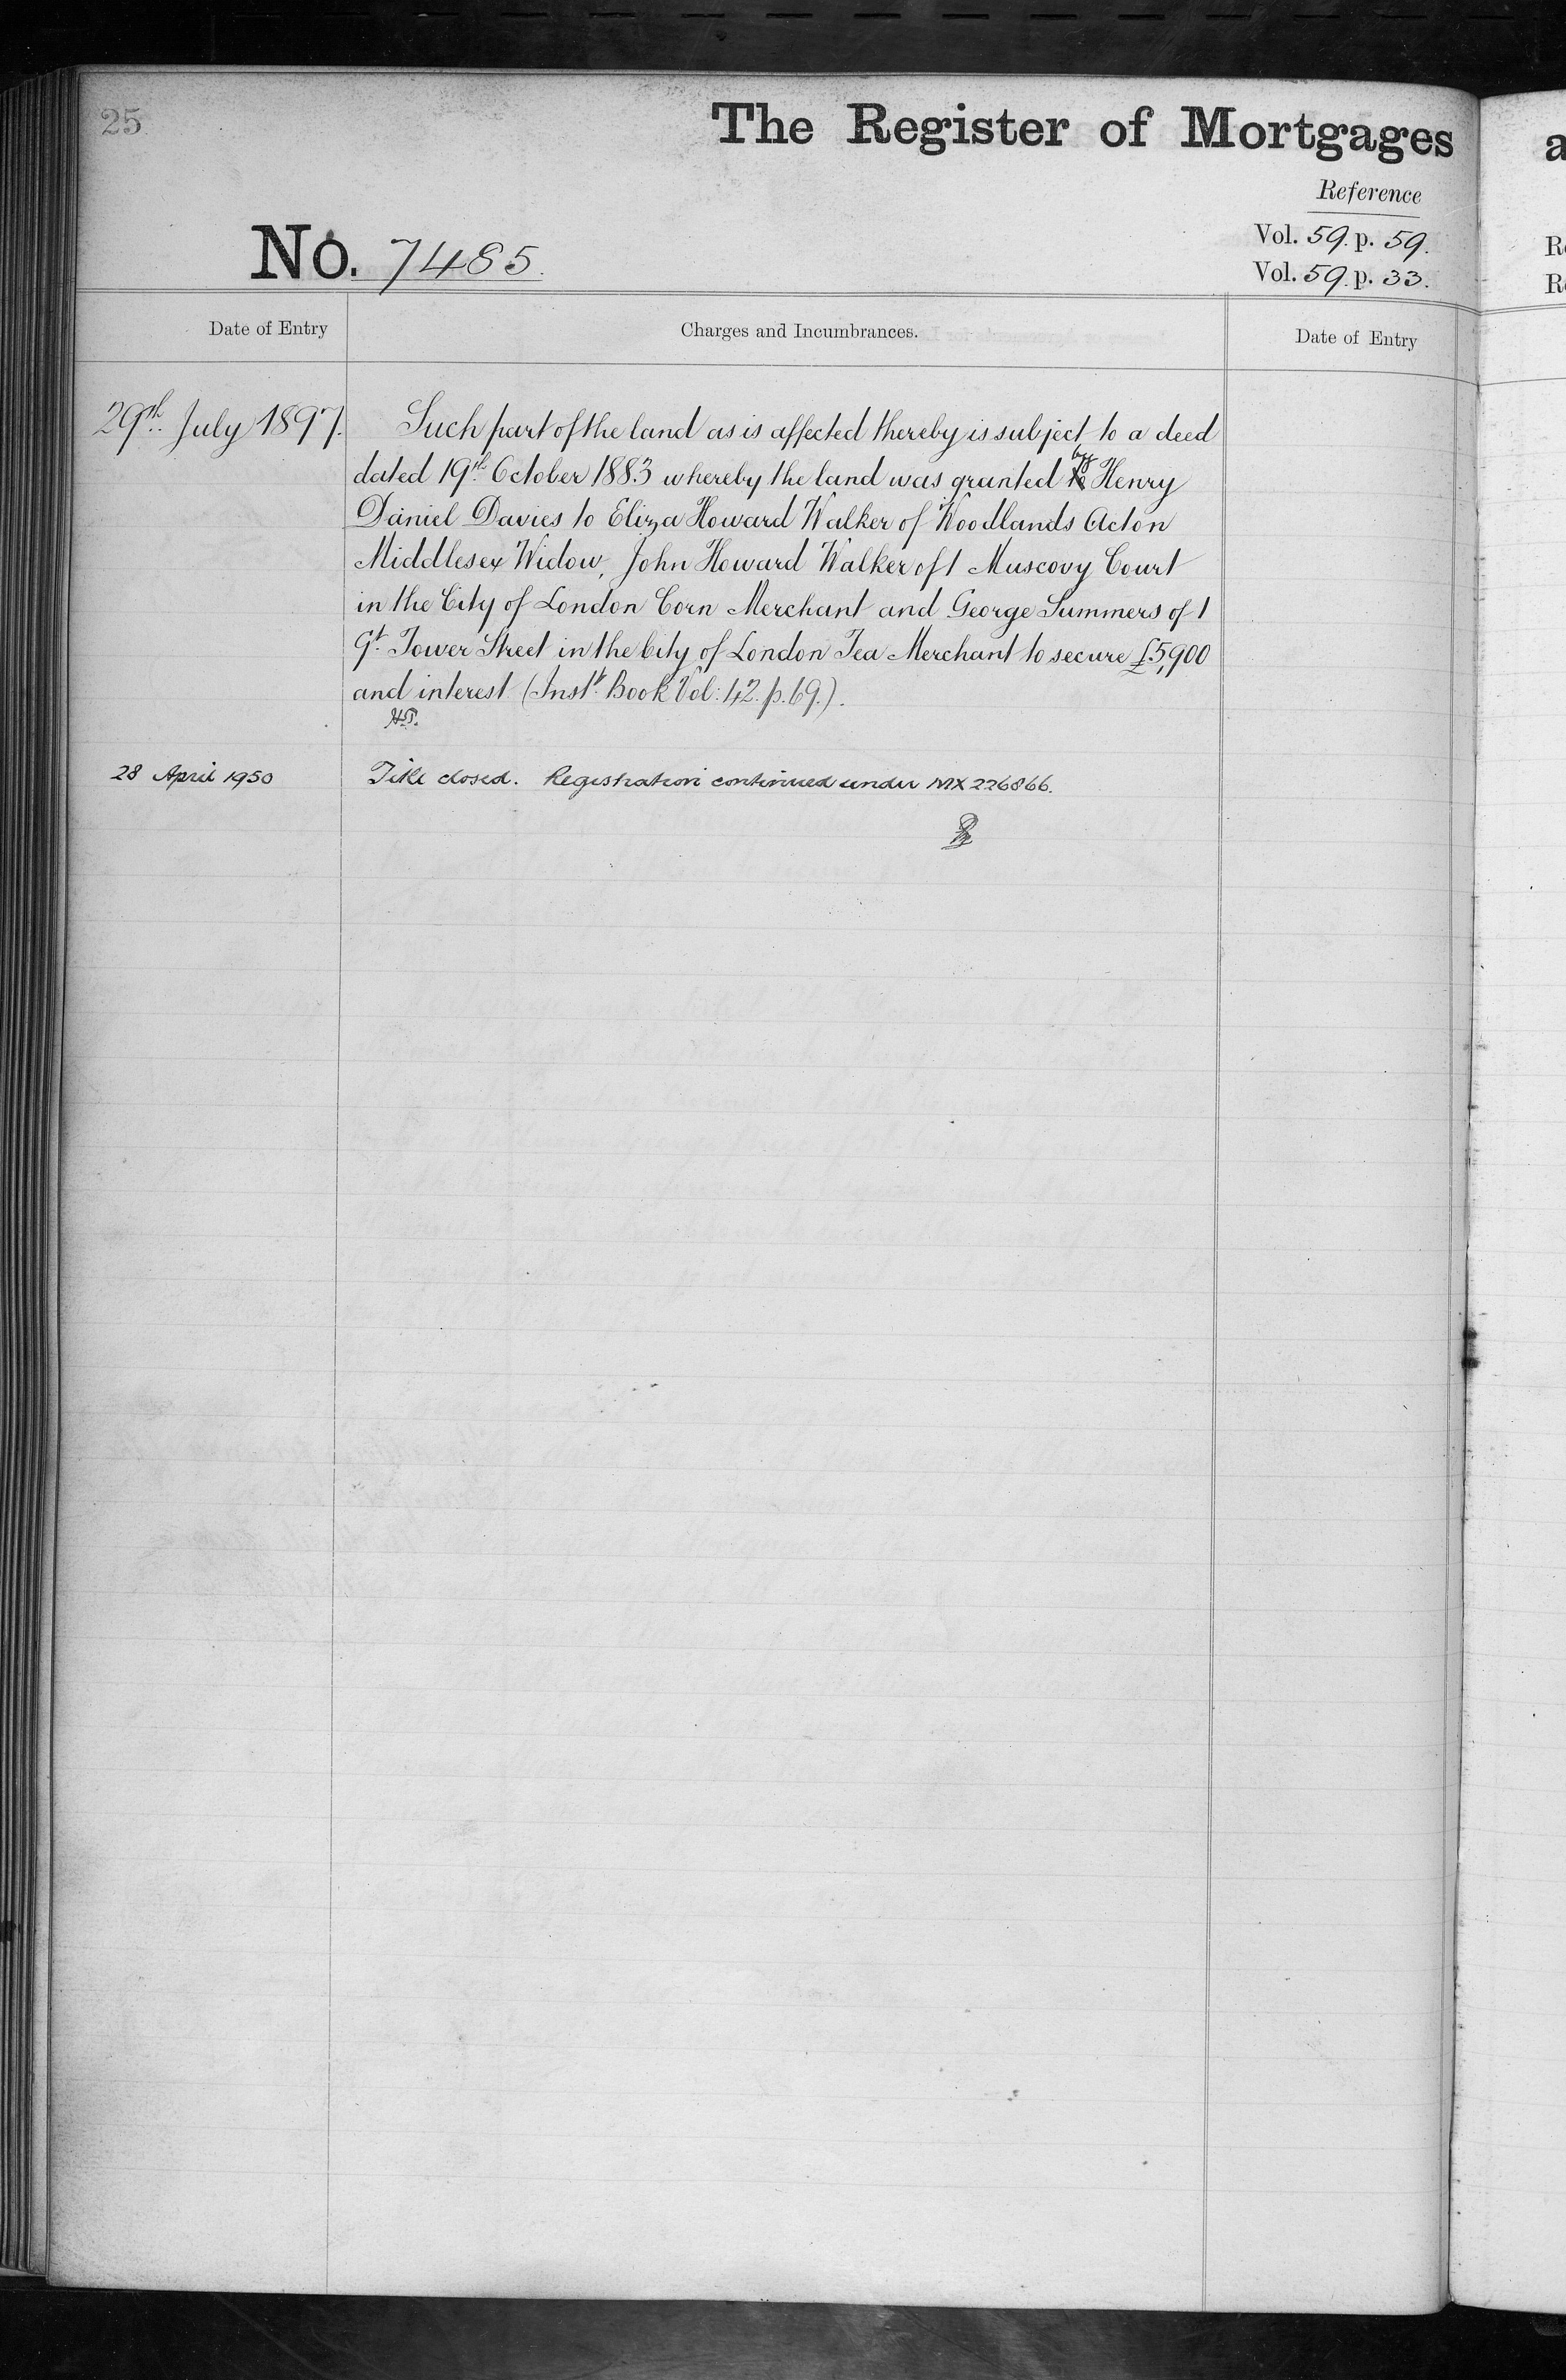 25
The Register of Mortgages
Reference
No. 7485.
Vol. 59. p. 59.
Vol. 59. p. 33.
Date of Entry
Charges and Incumbrances.
Date of Entry
29th July 1897.
Such part of the land as is affected thereby is subject to a deed
dated 19th October 1883 whereby the land was granted by to Henry
Daniel Davies to Eliza Howard Walker of Woodlands Acton
Middlesex Widow, John Howard Walker of 1 Muscovy Court
in the City of London Corn Merchant and George Summers of 1
Gt. Tower Street in the City of London Tea Merchant to secure £5,900
and interest (Instt. Book Vol: 42. p. 69.).
28 April 1950
Title closed. Registration continued under MX226866.
a
R
R